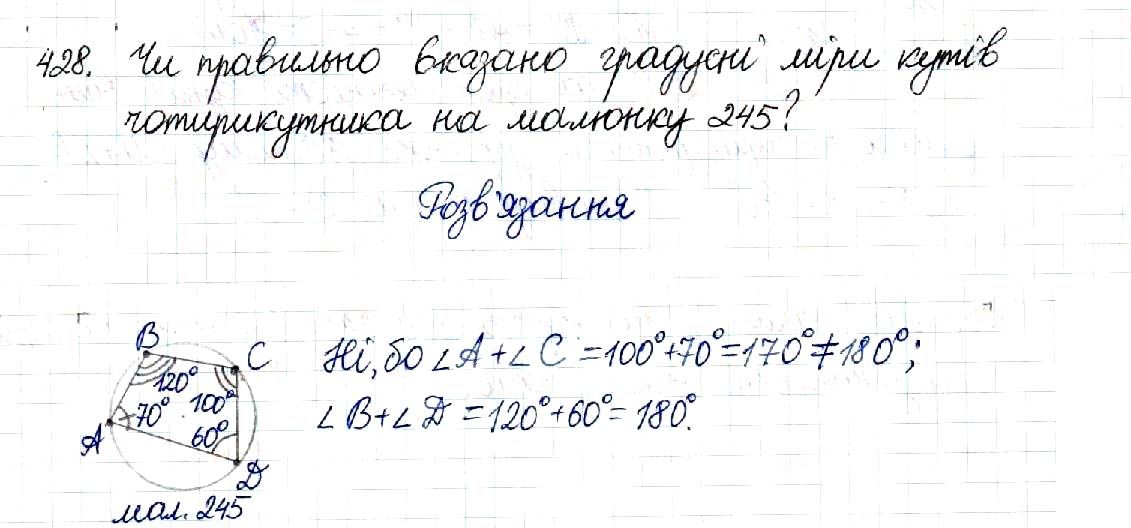 428. Чи правильно вказано градусні міри кутів
чотирикутника на малюнку 245?
Розв'язання
B
C
120°
70°
100°
A
60°
D
мал. 245
Ні, бо ∠A + ∠C = 100° + 70° = 170° ≠ 180°;
∠B + ∠D = 120° + 60° = 180°.